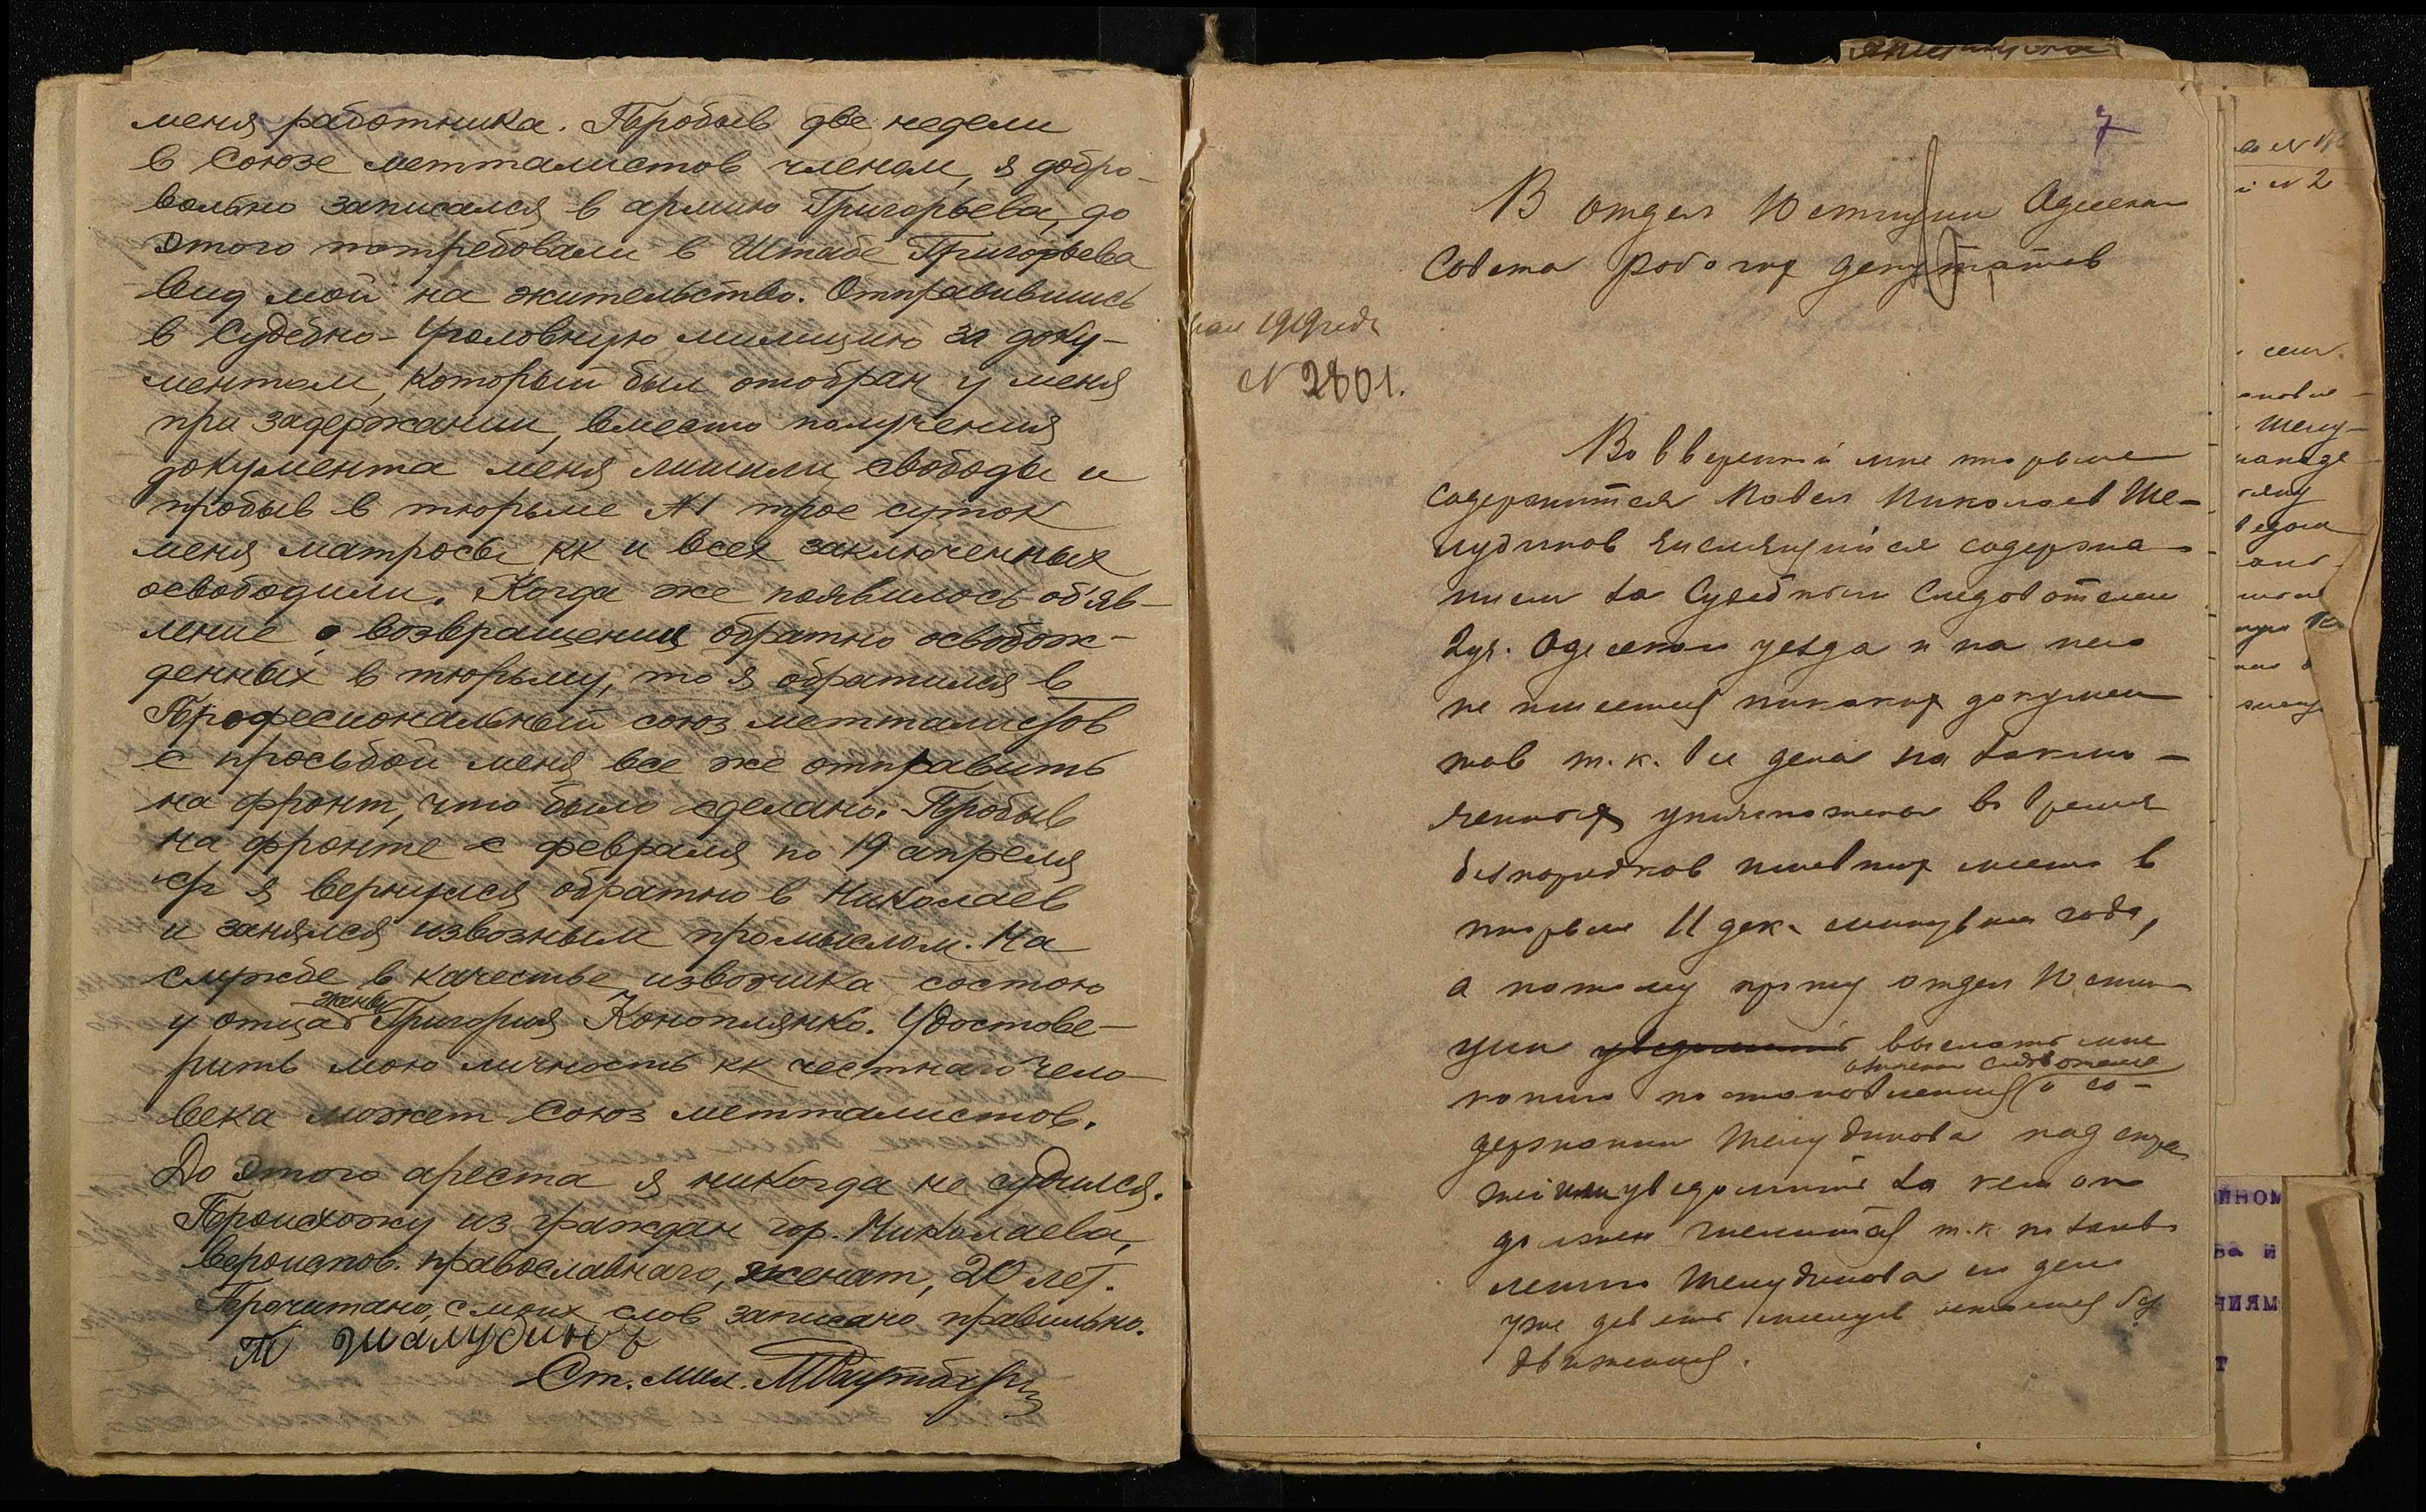 меня работника. Пробыв две недели
в Союзе метталистов членом, я добро-
вольно записался в армию Григорьева, до
этого потребовали в Штабе Григорьева
вид мой на жительство. Отправившись
в Судебно-Уголовную милицию за доку-
ментом, который был отобран у меня
при задержании, вместо получения
документа меня лишили свободы и
пробыв в тюрьме №1 трое суток
меня матросы кк и всех заключенных
освободили. Когда же появилось об'яв-
ление о возвращении обратно освобож-
денных в тюрьму, то я обратился в
Професиональный союз метталистов
с просьбой меня все же отправить
на фронт, что было сделано. Пробыв
на фронте с февраля по 19 апреля
ср я вернулся обратно в Николаев
и занялся извозным промыслом. На
службе в качестве извозчика состою
у отца жены Григория Коноплянко. Удостове-
рить мою личность кк честнаго чело-
века может Союз метталистов.
До этого ареста я никогда не судился.
Происхожу из граждан гор. Николаева,
вероиспов. православнаго, женат, 20 лет.
Прочитано, с моих слов записано правильно.
П Шалудинъ
Ст. мил.
7
В отдел Юстиции Одесскаго
Совета рабочих депутатов
мая 1919 года
N 2801.
Во вверенной мне тюрьме
содержится Павел Николаев Ше-
лудиков числящийся содержа-
нием за Судебным Следователем
2 уч. Одесскаго уезда и на него
не имеется никаких докумен
тов т.к. все дела на заклю-
ченных уничтожены во время
безпорядков имевших место в
тюрьме 11 дек. минувшаго года,
а потому прошу отдел Юсти-
ции уведомить выслать мне
означеннаго следователя
копию постановления о со-
держании Шелудикова под стра
жей или уведомить за кем он
должен числиться т.к. по заяв
лению Шелудикова его дело
уже девять месяцев остается без
движения.